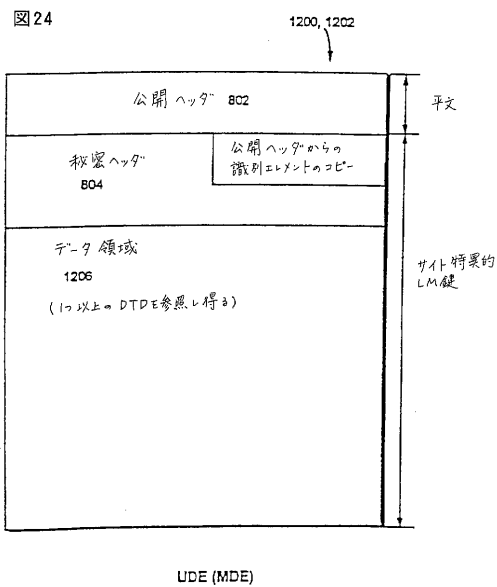 図24
1200, 1202
公開ヘッダ 802
平文
秘密ヘッダ
804
公開ヘッダからの
識別エレメントのコピー
データ領域
1206
(1つ以上のDTDE参照し得る)
サイト特異的
LM鍵
UDE (MDE)